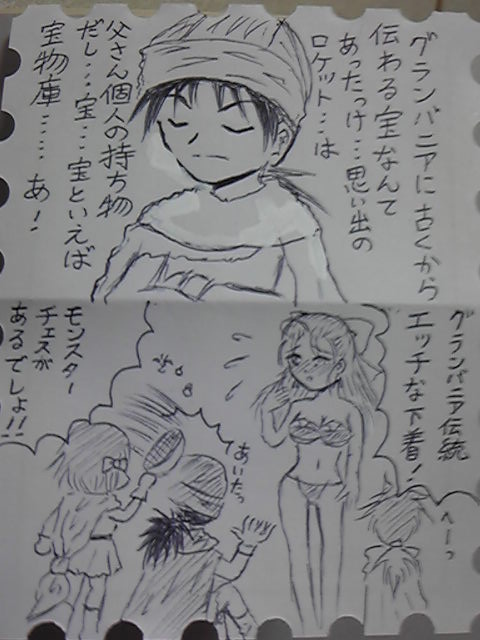 グランバニアに古くから
伝わる宝なんて
あったっけ…思い出の
ロケット…は
父さん個人の持ち物
だし…宝…宝といえば
宝物庫……あ!
グランバニア伝統
エッチな下着!
へーっ
あいたっ
モンスター
チェスが
あるでしょ!!